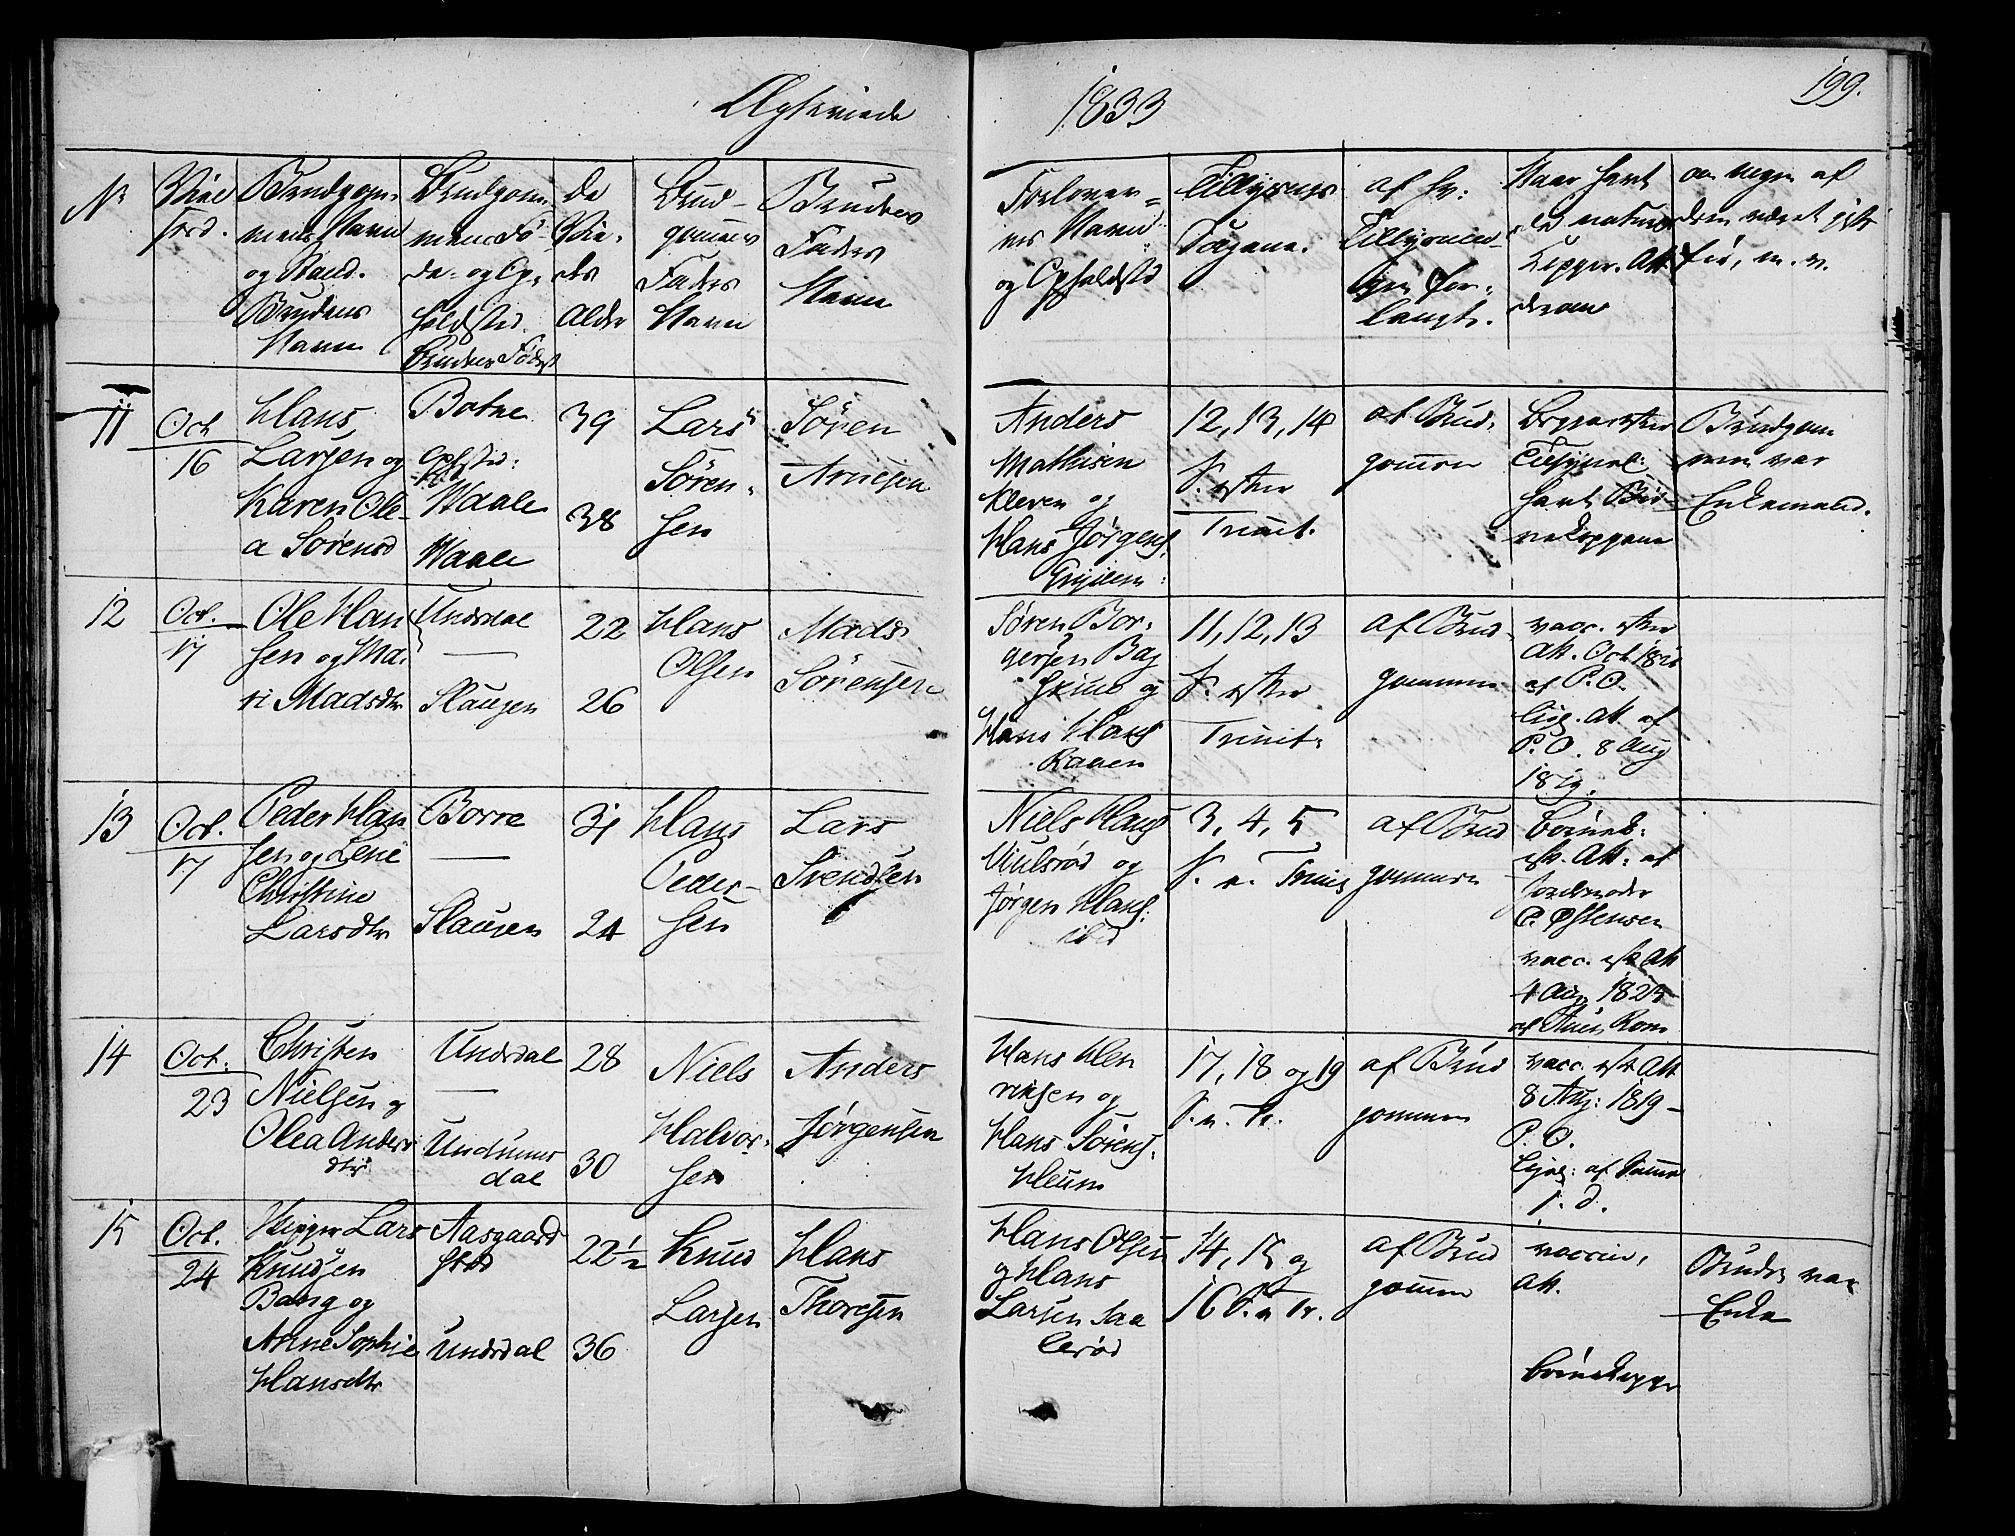 Ægteviede
1833
199.
No
Vie
ford.
Brudgom-
mens Navn
og Stand.
Brudens
Navn
Brudgom
mens Fø-
de- og Op-
holdsted.
Brudens Fødest
De
Vie-
des
Alder
Brud-
gommens
Faders
Navn
Brudens
Faders
Navn
Forlover-
nes Navn
og Opholdsted
Tillysnings
Dagene.
af hv:
Tillysnin-
gen for-
langt.
Naar havt
de naturl
Kopper. Att
derom
om nogen af
dem været gift
før, m. v.
11
Oct
16
Hans
Larsen og
Karen Ole-
a Sørensd
Botne
Opholdsted:
Waale
Waale
39
38
Lars
Søren-
sen
Søren
Arnesen
Anders
Mathisen
Kleven og
Hans Jørgens.
12, 13, 14
S. efter
Trinit.
af Brud-
gommen
havt Bør-
nekoppene
Brudgom
men var
Enkemand.
12
Oct.
17
Ole Han
sen og Ma-
ri Madsdtr
Undrdal
—
Slangen
22
26
Hans
Olsen
Mads
Sørensen
Søren Bor-
gersen Bag
Hans Hans
Raaen
11, 12, 13
S. efter
Trinit.
af Brud-
gommen
vacc. efter
Att. Oct 18
af P.O.
lige. Att. af
P.O. 8 Aug
1819.
13
Oct.
17
Peder Han
sen og Lene
Christine
Larsdtr
Borre
—
Slangen
31
24
Hans
Peder-
sen
Lars
Svendsen
Niels Hans
og
Jørgen Hans:
ibid
3, 4, 5
S. e. Trinit
af Brud
gommen
Børnek:
eft. Att. af
Jordmoder
P. Østensen
vacc. eft Att
4 Aug 1825
14
Oct:
23
Christen
Nielsen og
Olea Anders
dtr
Undrdal
—
Undrums
dal
28
30
Niels
Halvor-
sen
Anders
Jørgensen
Hans Hen
riksen og
Hans Sørens.
Heum
17, 18 og 19
S. e. Tr.
af Brud
gommen
vacc. eft Att
8 Aug: 1819-
P.O.
af Samme
s. d.
15
Oct.
24
Skipper Lars
Knudsen
Bang og
Anne Sophie
Hansdtr
Aasgaard
strd
Undrdal
22 1/2
36
Knud
Larsen
Hans
Thoresen
Hans Olsen
og Hans
Larsen Saa
lerød
14, 15 og
16 S. e Tr.
af Brud
gommen
vaccin,
Att.
Børnekopper
Bruden var
Enke